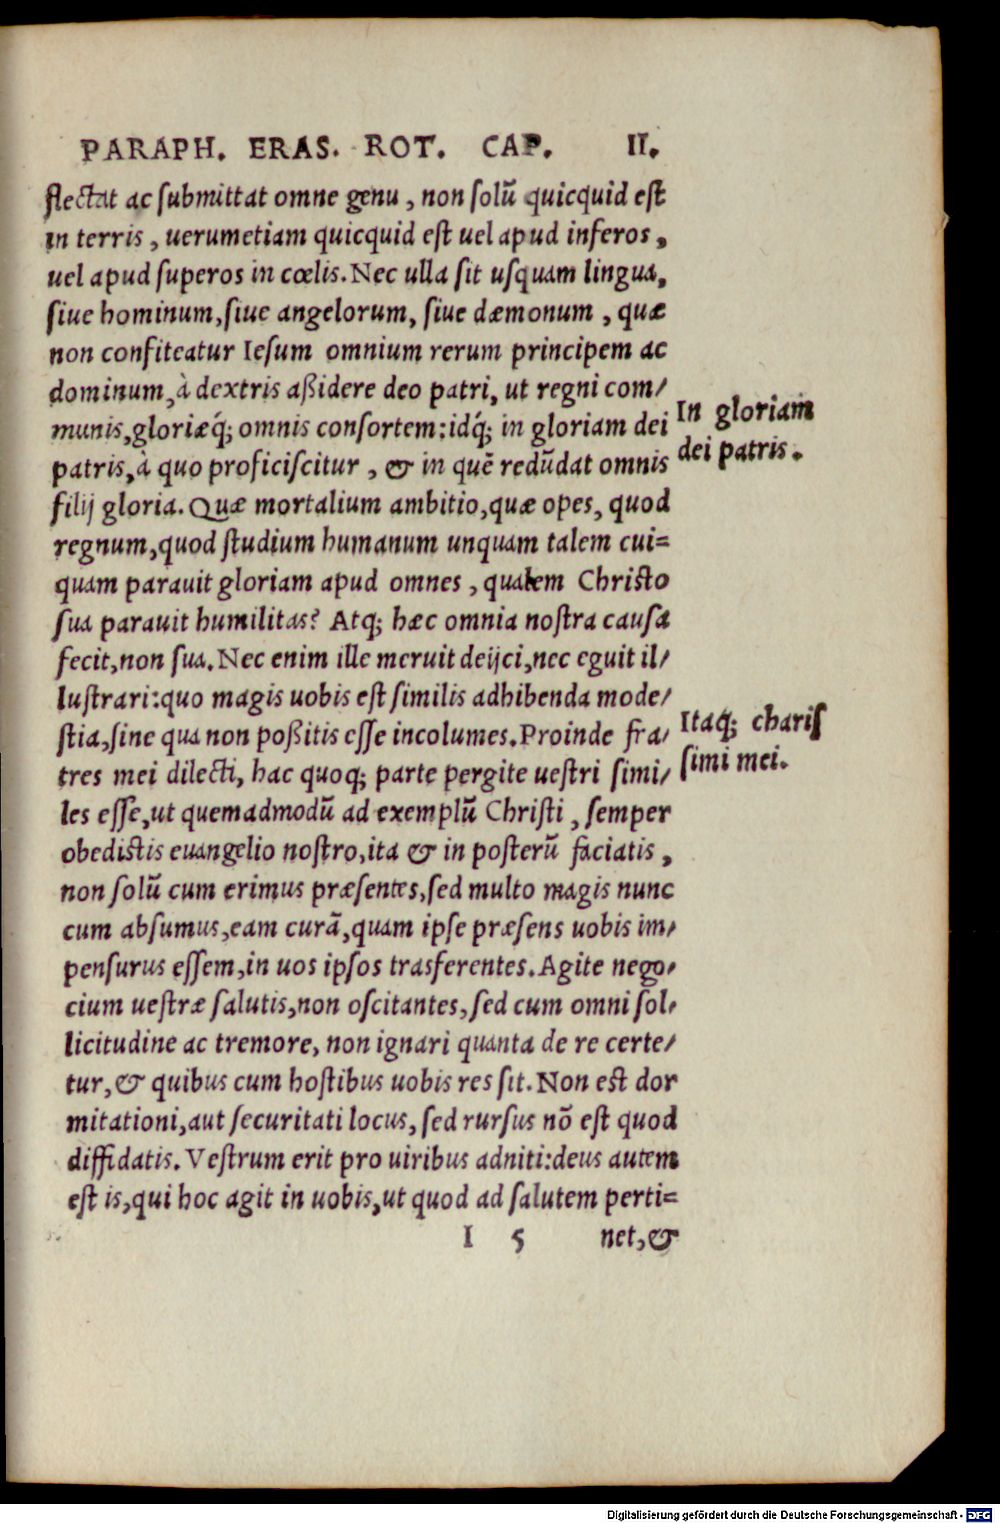 PARAPH. ERAS. ROT. CAP. II.
flectat ac ſubmittat omne genu, non ſolũ quicquid eſt
in terris, uerumetiam quicquid eſt uel apud inferos,
uel apud ſuperos in cœlis. Nec ulla ſit uſquam lingua,
ſiue hominum, ſiue angelorum, ſiue dæmonum, quæ
non confiteatur Ieſum omnium rerum principem ac
dominum, à dextris aßidere deo patri, ut regni com/
munis, gloriæq́; omnis conſortem: idq́; in gloriam dei
In gloriam
patris, à quo proficiſcitur, & in quẽ redũdat omnis
dei patris.
filij gloria. Quæ mortalium ambitio, quæ opes, quod
regnum, quod ſtudium humanum unquam talem cui=
quam parauit gloriam apud omnes, qualem Chriſto
ſua parauit humilitas? Atq; hæc omnia noſtra cauſa
fecit, non ſua. Nec enim ille meruit deijci, nec eguit il/
luſtrari: quo magis uobis eſt ſimilis adhibenda mode/
ſtia, ſine qua non poßitis eſſe incolumes. Proinde fra/
Itaq; chariſ
tres mei dilecti, hac quoq; parte pergite ueſtri ſimi/
ſimi mei.
les eſſe, ut quemadmodũ ad exemplũ Chriſti, ſemper
obediſtis euangelio noſtro, ita & in poſterũ faciatis,
non ſolũ cum erimus præſentes, ſed multo magis nunc
cum abſumus, eam curã, quam ipſe præſens uobis im/
penſurus eſſem, in uos ipſos trasferentes. Agite nego/
cium ueſtræ ſalutis, non oſcitantes, ſed cum omni ſol/
licitudine ac tremore, non ignari quanta de re certe/
tur, & quibus cum hoſtibus uobis res ſit. Non eſt dor
mitationi, aut ſecuritati locus, ſed rurſus nõ eſt quod
diffidatis. Veſtrum erit pro uiribus adniti: deus autem
eſt is, qui hoc agit in uobis, ut quod ad ſalutem perti=
I 5 net, &
Digitalisierung gefördert durch die Deutsche Forschungsgemeinschaft - DFG